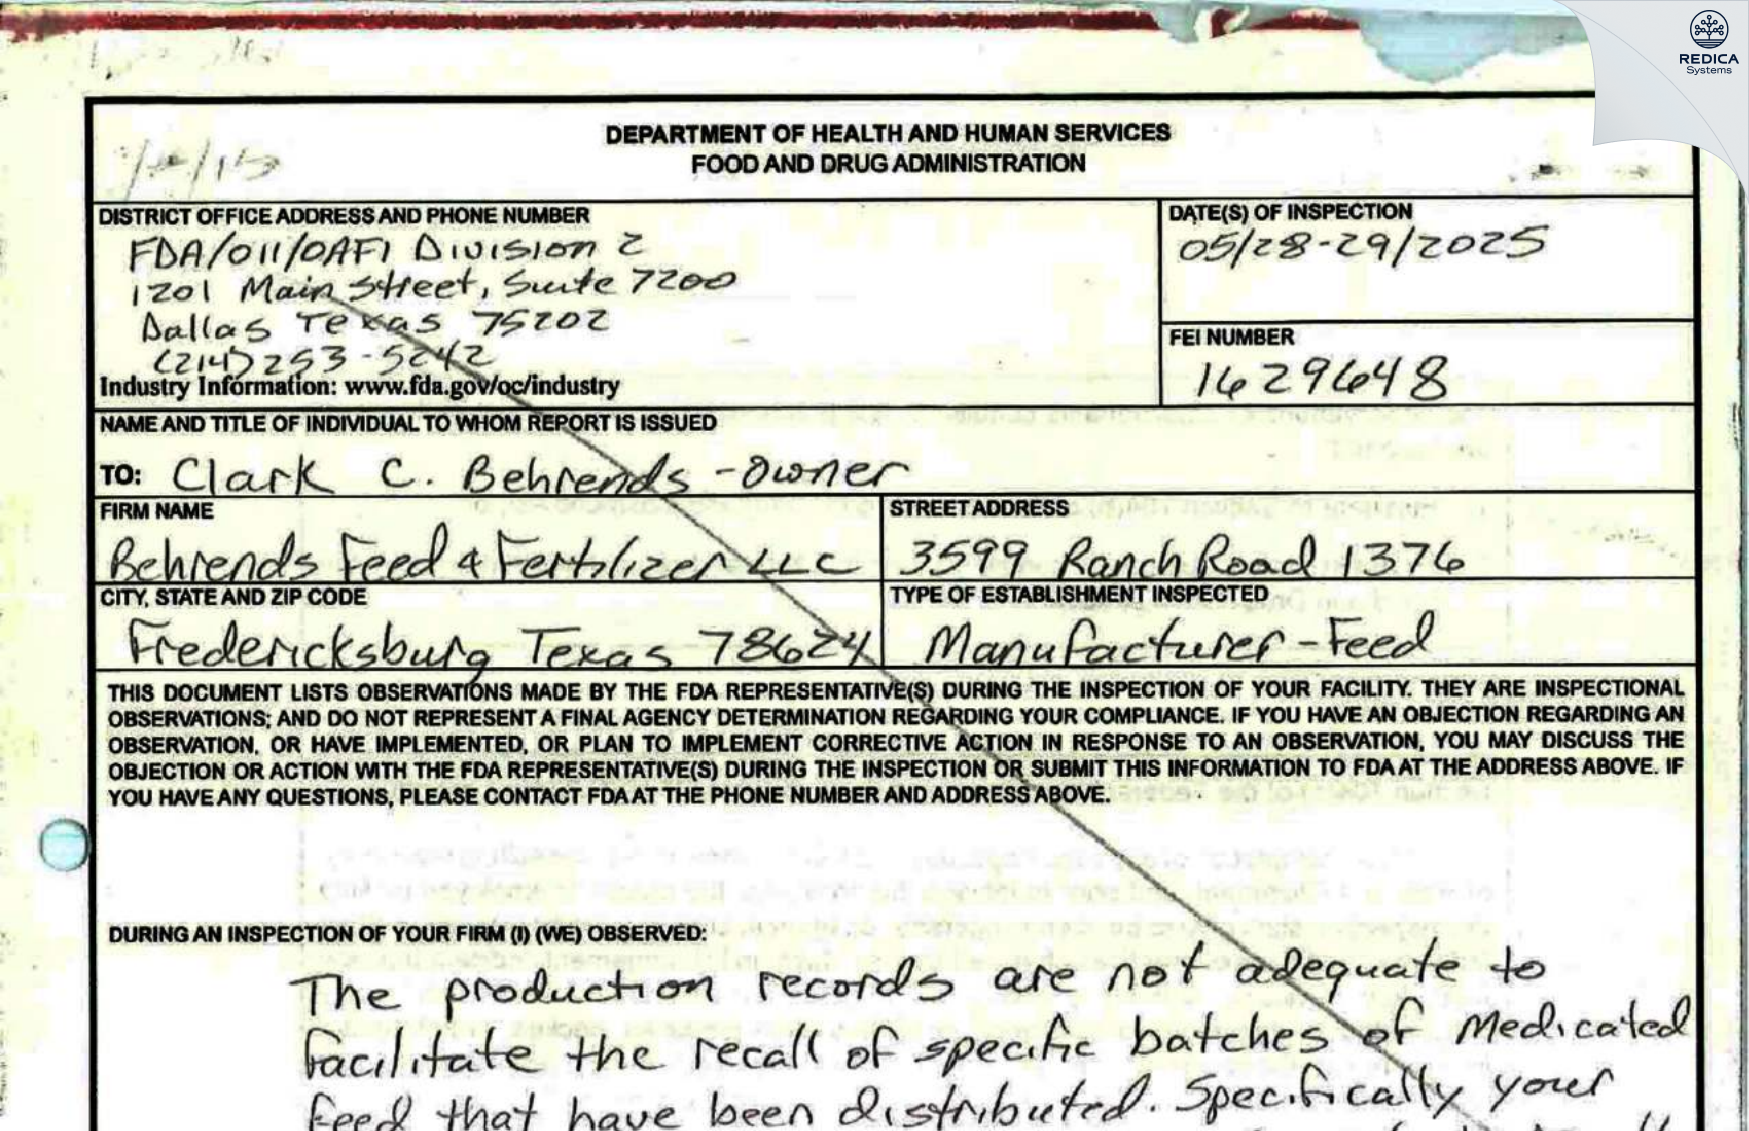 REDICA
Systems
DEPARTMENT OF HEALTH AND HUMAN SERVICES
FOOD AND DRUG ADMINISTRATION
DISTRICT OFFICE ADDRESS AND PHONE NUMBER
FDA/OII/OAFI Division 2
1201 Main Street, Suite 7200
Dallas Texas 75202
(214) 253-5242
Industry Information: www.fda.gov/oc/industry
DATE(S) OF INSPECTION
05/28-29/2025
FEI NUMBER
1629648
NAME AND TITLE OF INDIVIDUAL TO WHOM REPORT IS ISSUED
TO: Clark C. Behrends - owner
FIRM NAME
Behrends Feed & Fertilizer LLC
STREET ADDRESS
3599 Ranch Road 1376
CITY, STATE AND ZIP CODE
Fredericksburg Texas 78624
TYPE OF ESTABLISHMENT INSPECTED
Manufacturer - Feed
THIS DOCUMENT LISTS OBSERVATIONS MADE BY THE FDA REPRESENTATIVE(S) DURING THE INSPECTION OF YOUR FACILITY. THEY ARE INSPECTIONAL
OBSERVATIONS; AND DO NOT REPRESENT A FINAL AGENCY DETERMINATION REGARDING YOUR COMPLIANCE. IF YOU HAVE AN OBJECTION REGARDING AN
OBSERVATION, OR HAVE IMPLEMENTED, OR PLAN TO IMPLEMENT CORRECTIVE ACTION IN RESPONSE TO AN OBSERVATION, YOU MAY DISCUSS THE
OBJECTION OR ACTION WITH THE FDA REPRESENTATIVE(S) DURING THE INSPECTION OR SUBMIT THIS INFORMATION TO FDA AT THE ADDRESS ABOVE. IF
YOU HAVE ANY QUESTIONS, PLEASE CONTACT FDA AT THE PHONE NUMBER AND ADDRESS ABOVE.
DURING AN INSPECTION OF YOUR FIRM (I) (WE) OBSERVED:
The production records are not adequate to
facilitate the recall of specific batches of Medicated
feed that have been distributed. Specifically your